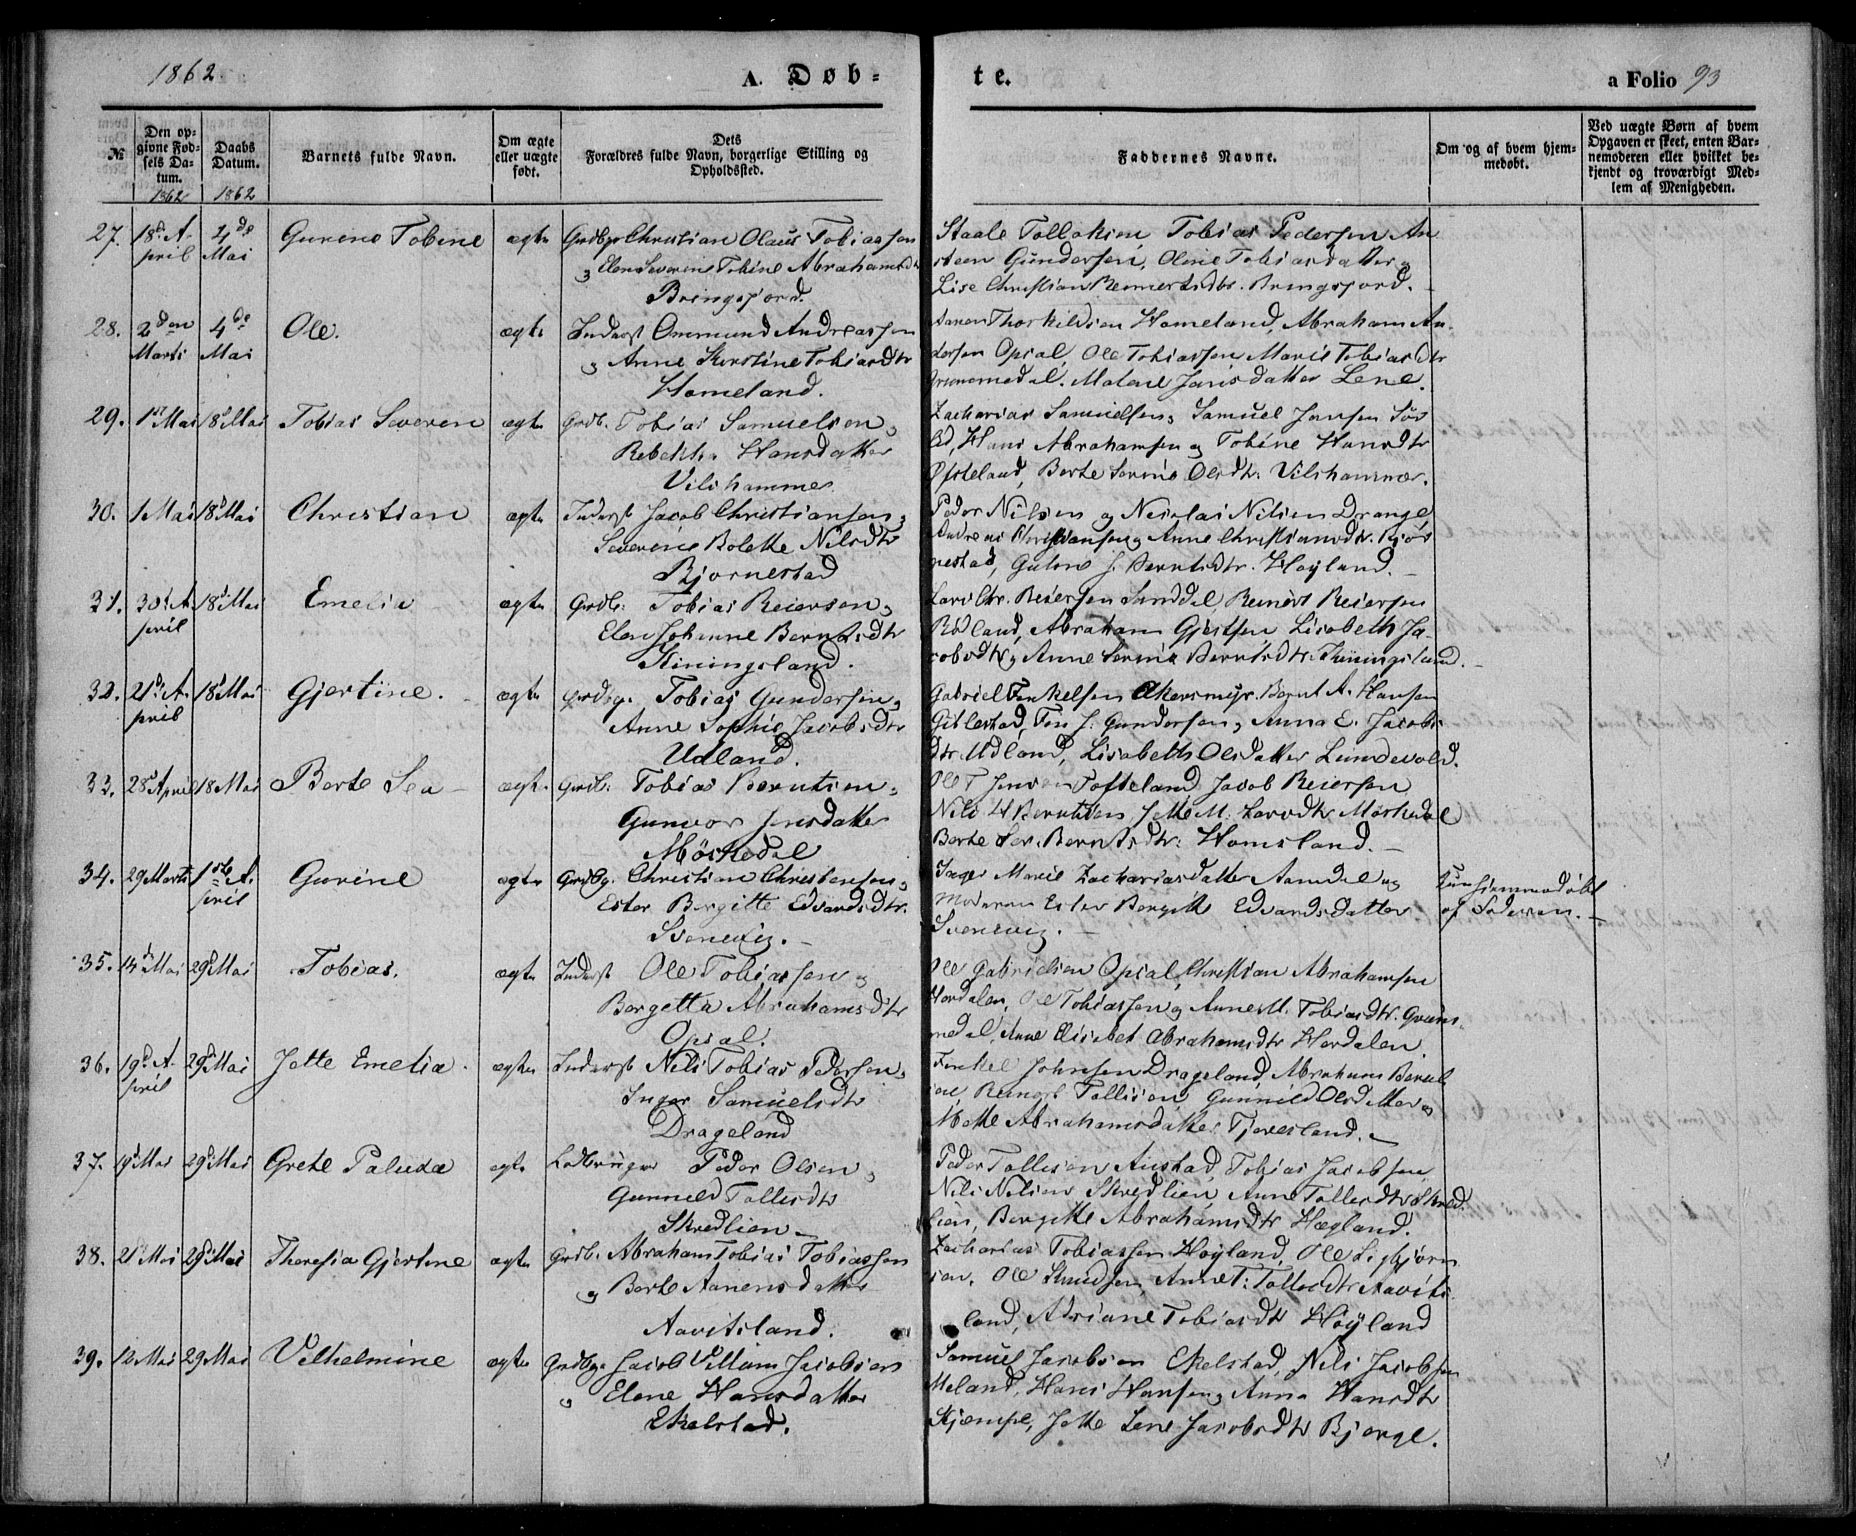 1862
A. Døb-
te.
a Folio 93
№
Den op-
givne Fød-
sels Da-
tum.
1862
Daabs
Datum.
1862
Barnets fulde Navn.
Om ægte
eller uægte
født.
Dets
Forældres fulde Navn, borgerlige Stilling og
Opholdssted.
Faddernes Navne.
Om og af hvem hjem-
medøbt.
Ved uægte Børn af hvem
Opgaven er skeet, enten Bar-
nemoderen eller hvilket be-
kjendt og troværdigt Med-
lem af Menigheden.
27. 18de A-
pril
4de
Mai
Gurine Tobine
ægte
Grdbgr Christian Olaus Tobiassen
og Elen Severine Tobine Abrahamsdtr
Bringsjord.
Staale Tollaksen, Tobias Pedersen An
steen Gundersen, Oline Tobiasdatter og
Lise Christian Reinertsdtr. Bringsjord.
28. 2den
Marts
4de
Mai
Ole.
ægte
Inderst Ommund Andreassen
og Anne Kirstine Tobiasdtr
Homeland.
Aanen Thorkildsen Homeland, Abraham An-
dersen Opsal, Ole Tobiassen Marie Tobiasdtr
Grunnemedal. Malene Jansdatter Lene.
29. 1st Mai 18d Mai
Tobias Severen
ægte
Grdb. Tobias Samuelsen og
Rebekka Hansdatter
Vilshammer
Zacharias Samuelsen, Samuel Jansen
Hans Abrahamsen og Tobine Hansdtr
Øfsteland, Berte Serine Olsdtr. Vilshammer.
30. 1 Mai 18d Mai
Christian
ægte
Inderst Jacob Christiansen og
Severine Bolette Nilsdtr
Bjørnestad
Peder Nilsen og Nicolai Nilsen Drange
Andreas Christiansen og Anne Christiansdtr. Bjør
nestad, J. Berntsdtr. Høyland.
31. 30te A-
pril
18d Mai
Emelia
ægte
Grdb. Tobias Reiersen og
Elen Johanne Berntsdtr
Kiningsland.
Lars Chr. Reiersen Sunddal Reinert Reiersen
Rødland, Abraham Gjertsen Lisabeth Ja-
cobsdtr og Anne Serine Berntsdtr. Kiningsland.
32. 21de A-
pril
18d Mai
Gjertine.
ægte
Grdbgr. Tobias Gundersen og
Anne Sophie Jacobsdtr
Udland.
Gabriel Tønkelsen Akersmyr. Bernt A. Hansen
Giblestad, J. Gundersen og Anna E. Jacobs
dtr Udland, Lisabeth Olsdatter Lundevold.
33. 28d April 18 Mai
Berte Sea
ægte
Grdb. Tobias Berntsen og
Gunvor Jensdatter
Møskedal
Ole T Jensen Tofteland Jacob Reiersen
Nils H Berntsen Jette M. Larsdtr Møskedal
Berte Ser. Berntsdtr. Homsland.
34. 29 Marts 1ste A.
pril
Gurine
ægte
Grdbg. Christian Christensen og
Ester Bergitte Edvardsdtr.
Svenevig.
Marie Zachariasdatter Aamdal og
Moderen Ester Bergitte Edvardsdatter
Svenevig.
Kun hjemmedøbt
af
35. 14de Mai 29d Mai
Tobias.
ægte
Inderst Ole Tobiassen og
Bergetta Abrahamsdtr
Opsal.
Ole Gabrielsen Opsal, Christian Abrahamsen
Hordalen, Ole Tobiassen og Anne M. Tobiasdtr. Grunne-
medal, Anne Elisabet Abrahamsdtr Hordalen.
36. 19de A-
pril
29d Mai
Jette Emelia
ægte
Inderst Nils Tobias Pedersen og
Inger Samuelsdtr
Drageland
Tønkel Johnsen Drageland, Abraham
Tollisen, Gunnild Olsdatter og
Mette Abrahamsdatter Tjovesland.
37. 19d Mai 29d Mai
Grete Paluda
ægte
Ledbruger Peder Olsen og
Gunneld Tollesdtr
Skredlien
Peder Tollisen Austad, Tobias Jacobsen
Nils Nilsen Skredlien, Anne Tollesdtr Skred
lien, Bergitte Abrahamsdtr Hægland.
38. 21 Mai 29d Mai
Theresia Gjertine
ægte
Grdb. Abraham Tobias Tobiassen
og Berte Aanensdatter
Aavitsland.
Zacharias Tobiassen Høyland, Ole Sigbjørn
sen, Ole Knudsen, Anne T. Tollesdtr Aavits
land, Adriane Tobiasdtr Høyland
39. 12 Mai 29 Mai
Vilhelmine
ægte
Grdbgr Jacob Villum Jacobsen
og Elene Hansdatter
Ekelstad.
Samuel Jacobsen Ekelstad, Nils Jacobsen
Meland, Hans Hansen og Anna Hansdtr
Kjempe, Jette Lene Jacobsdtr Bjerge.